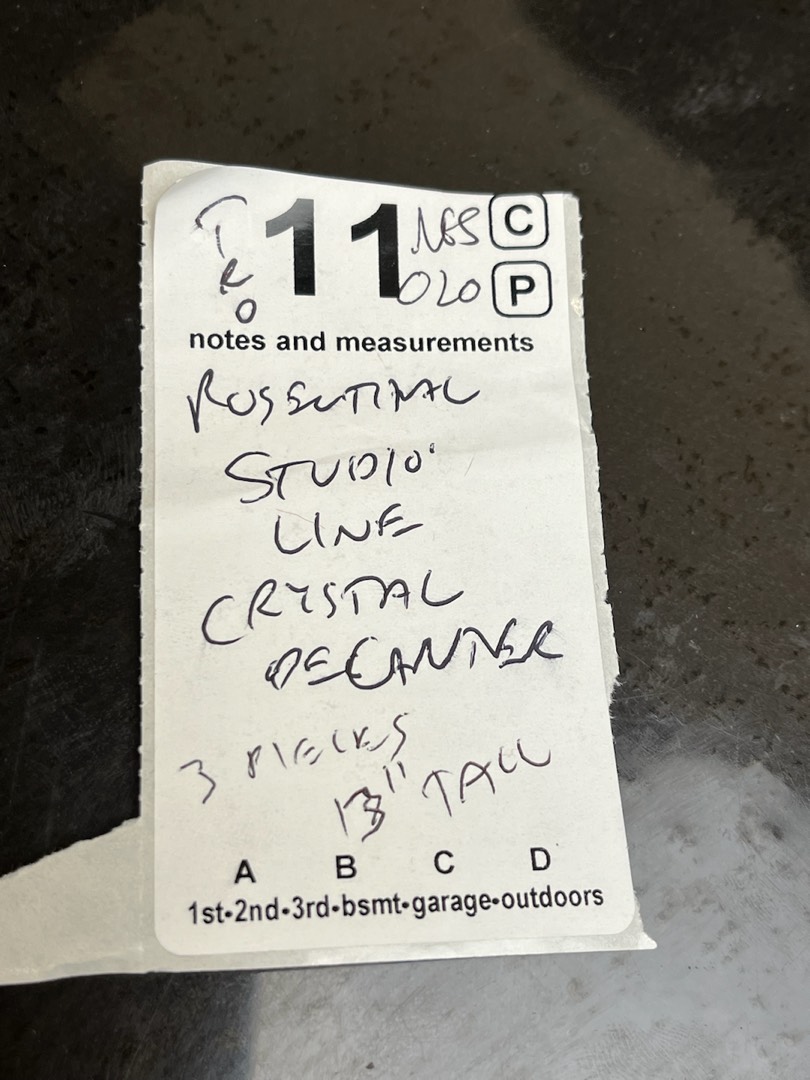 11 C
OLO P
notes and measurements
ROSENTHAL
STUDIO
LINE
CRYSTAL
DECANTER
3 PIECES
13" TALL
A B C D
1st-2nd-3rd-bsmt-garage-outdoors